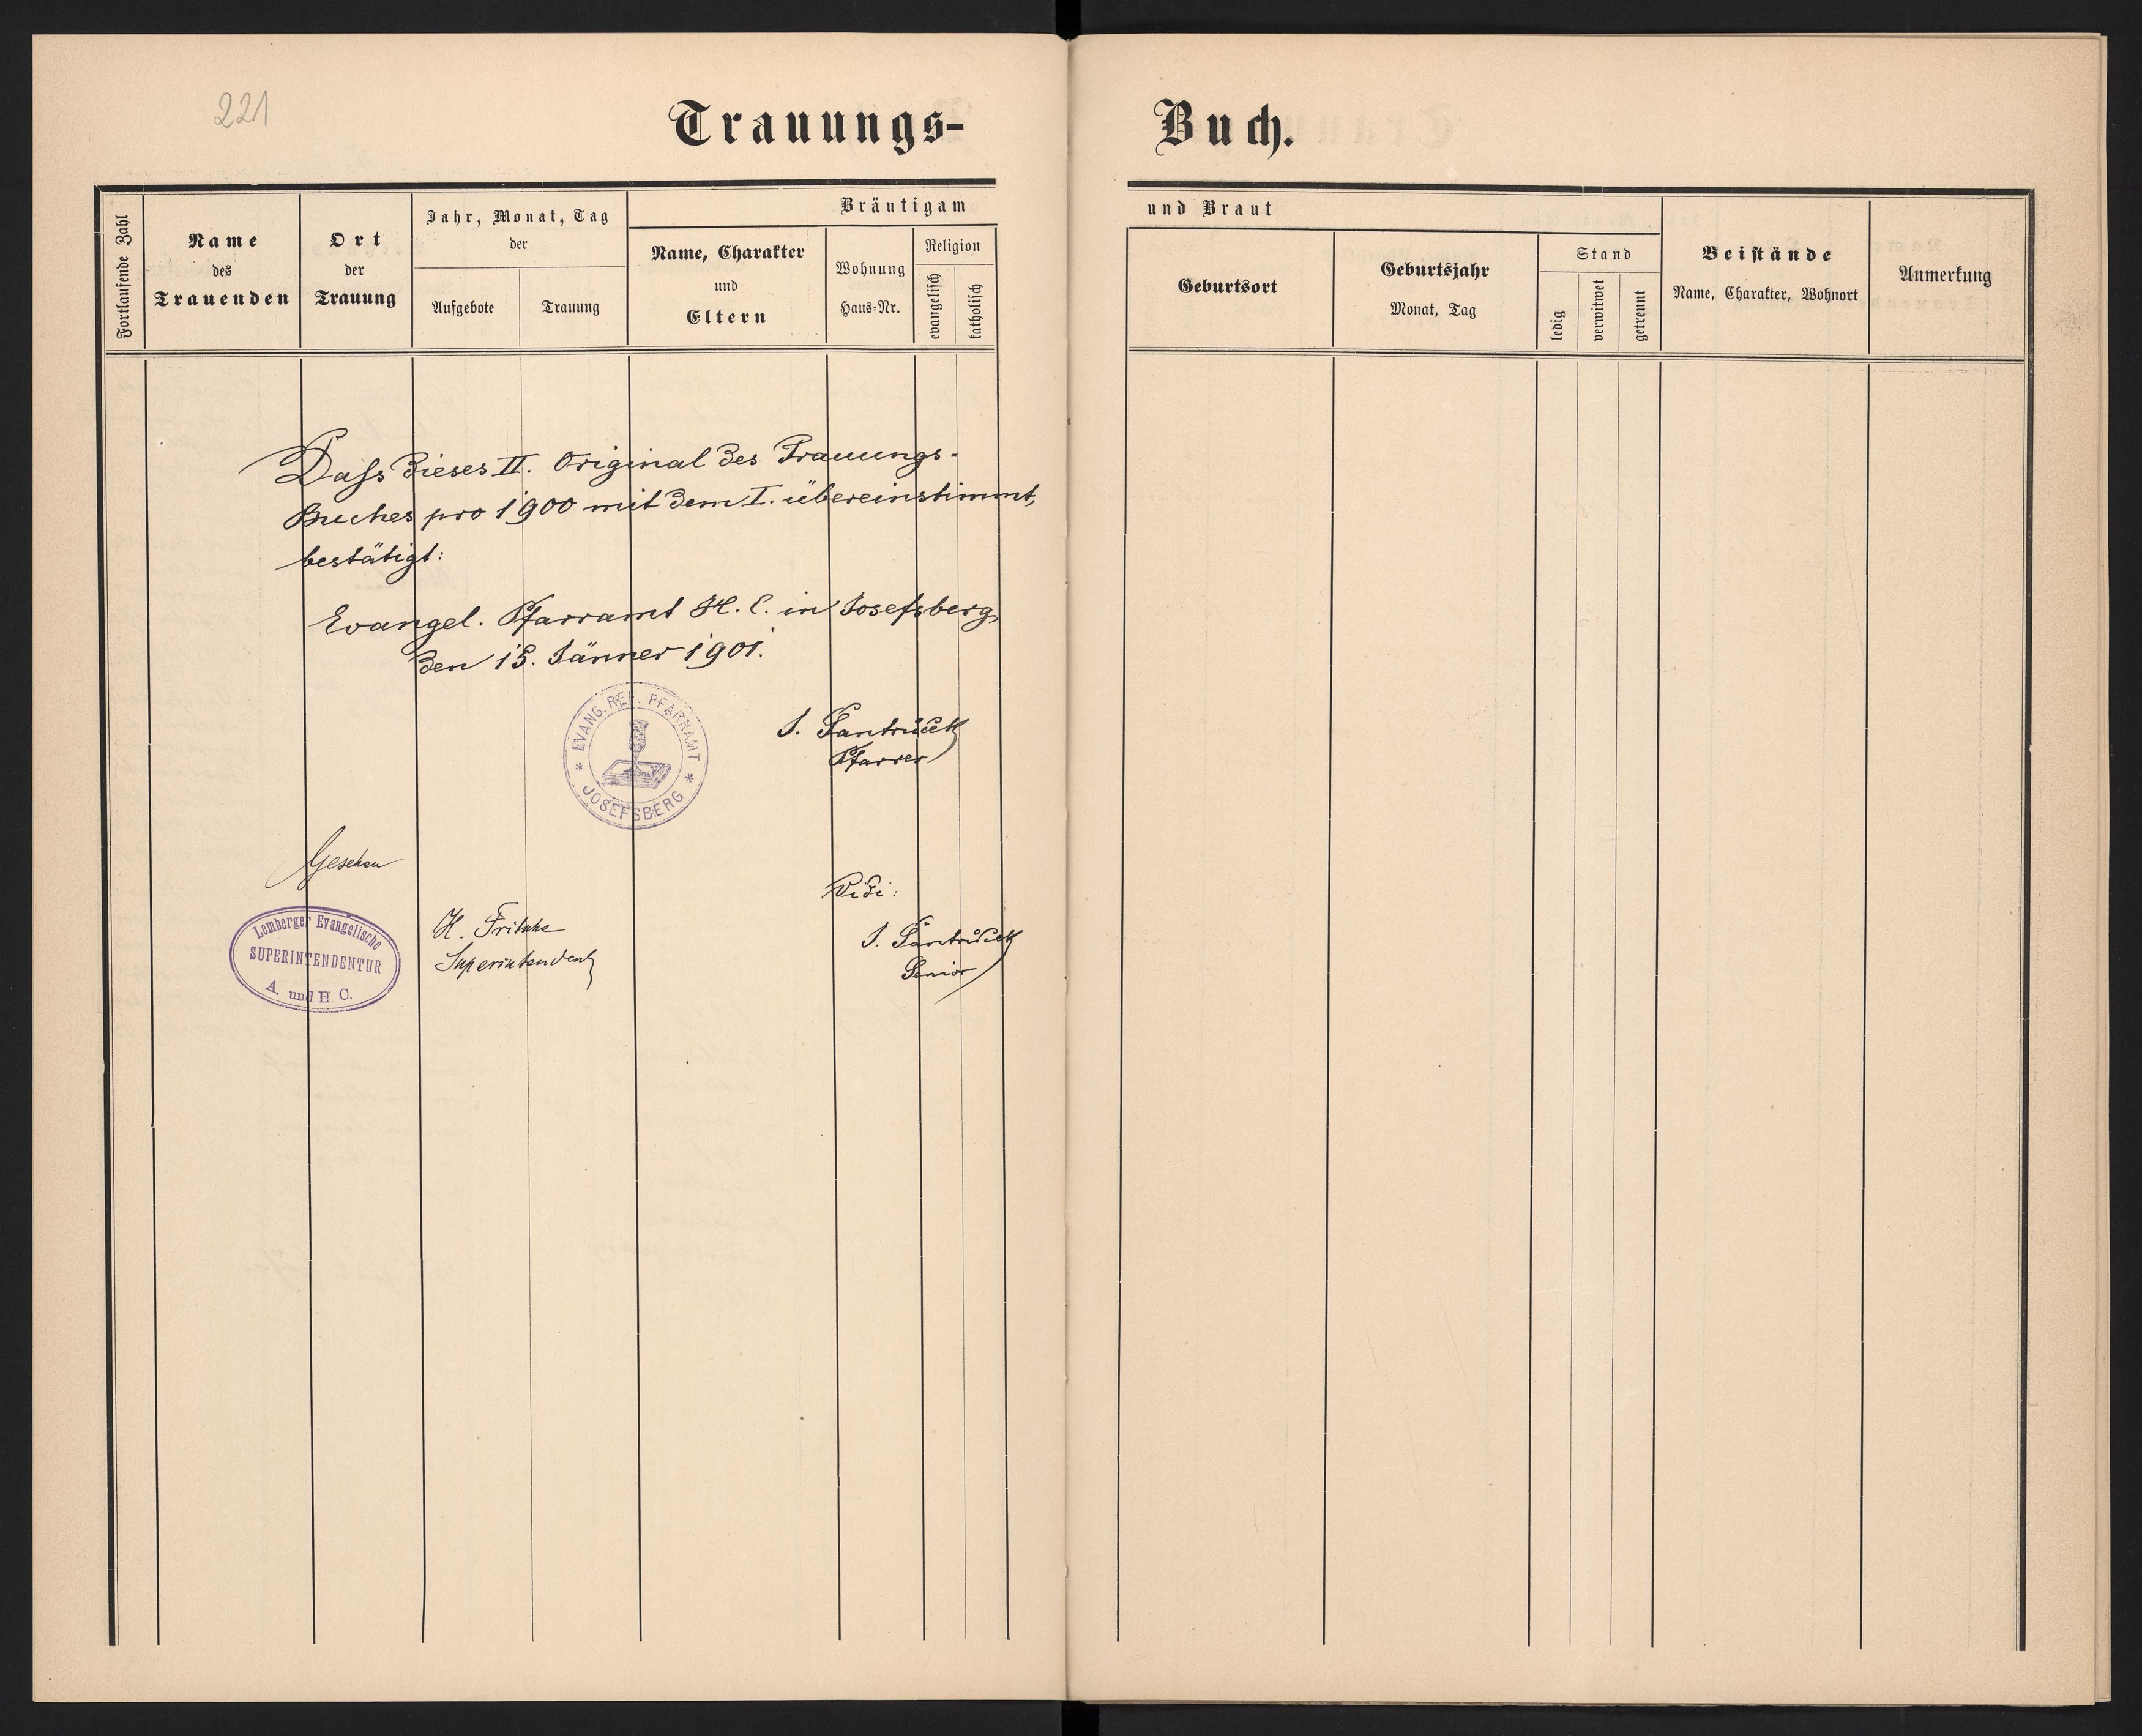 221
Trauungs-
Buch.
Fortlaufende Zahl
Name
des
Trauenden
Ort
der
Trauung
Jahr, Monat, Tag
der
Aufgebote
Trauung
Bräutigam
Name, Charakter
und
Eltern
Wohnung
Haus-Nr.
Religion
evangelisch
katholisch
und Braut
Geburtsort
Geburtsjahr
Monat, Tag
Stand
ledig
verwitwet
getrennt
Beistände
Name, Charakter, Wohnort
Anmerkung
Dass dieses II. Original des Trauungs-
Buches pro 1900 mit dem I. übereinstimmt,
bestätigt:
Evangel. Pfarramt H. C. in Josefsberg
den 15. Jänner 1901.
EVANG. REF. PFARRAMT
* JOSEFSBERG *
J. Fantrůček
Pfarrer
Gesehen
Lemberger Evangelische
SUPERINTENDENTUR
A. und H. C.
H. Fritsche
Superintendent
Vidi:
J. Fantrůček
Senior